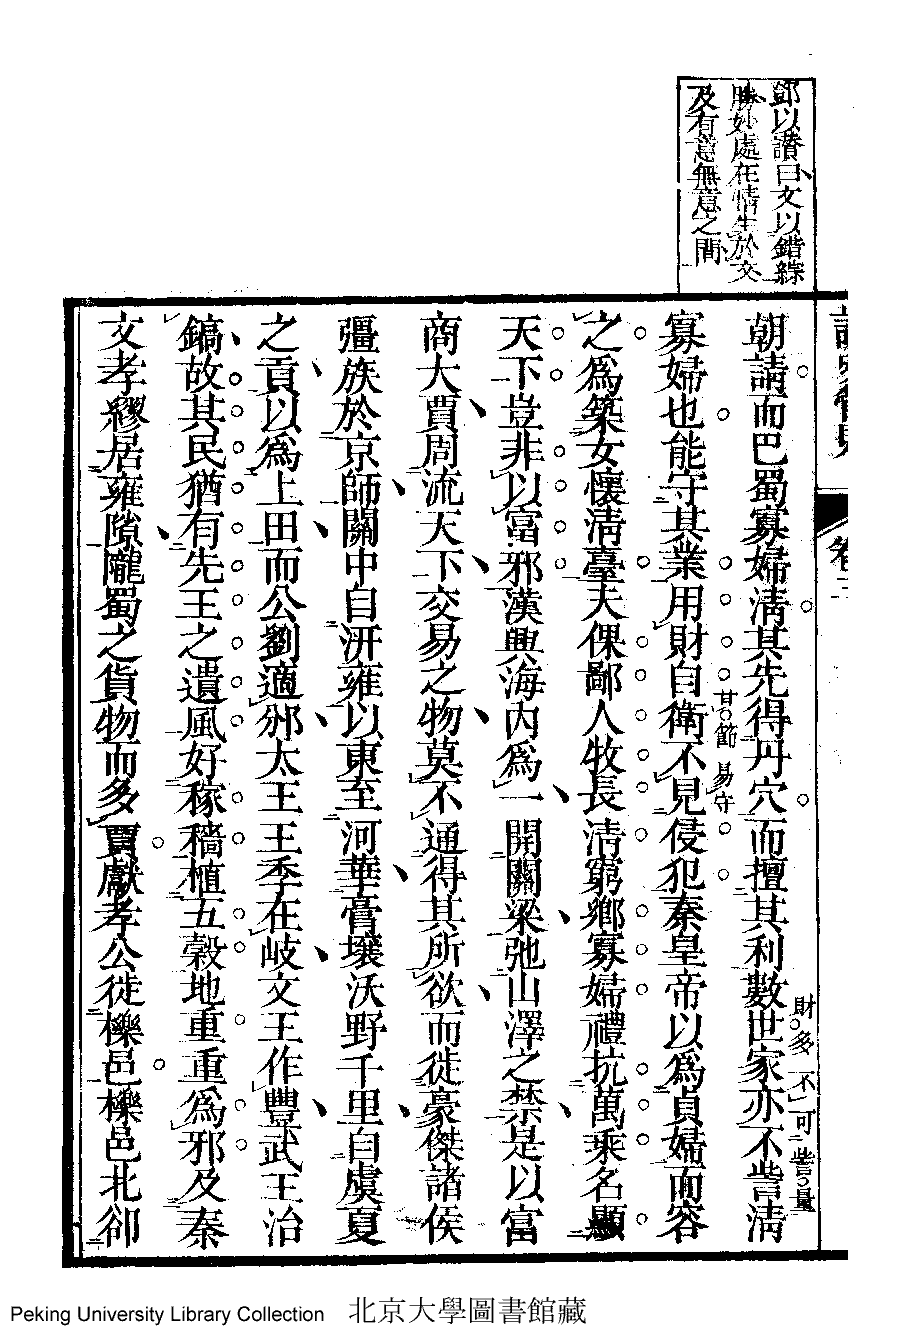 鄧以讃曰文以錯綜
勝妙處在情生於文
及有意無意之間
朝請而巴蜀寡婦清其先得丹穴而擅其利數世家亦不訾清
財多不可訾量
寡婦也能守其業用財自衛不見侵犯秦皇帝以為貞婦而客
甘節易守
之為築女懷清臺夫倮鄙人牧長清窮鄉寡婦禮抗萬乘名顯
天下豈非以富邪漢興海內為一開關梁弛山澤之禁是以富
商大賈周流天下交易之物莫不通得其所欲而徙豪傑諸侯
彊族於京師關中自汧雍以東至河華膏壤沃野千里自虞夏
之貢以為上田而公劉適邠太王王季在岐文王作豐武王治
鎬故其民猶有先王之遺風好稼穡植五穀地重重為邪及秦
文孝繆居雍隙隴蜀之貨物而多賈獻孝公徙櫟邑櫟邑北卻
Peking University Library Collection 北京大學圖書館藏